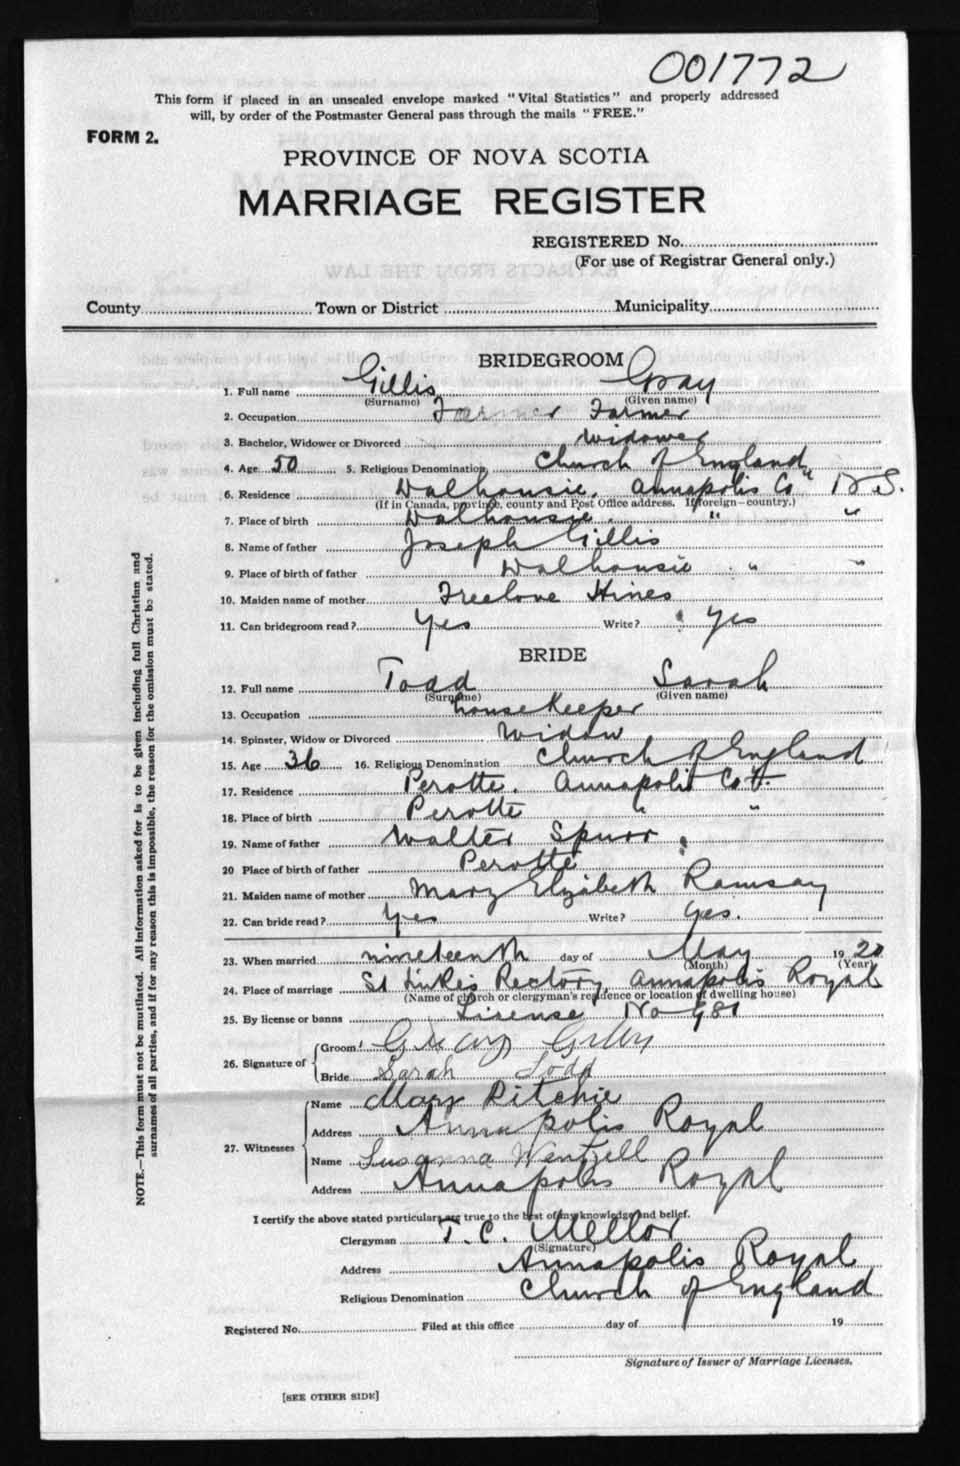 001772
This form if placed in an unsealed envelope marked "Vital Statistics" and properly addressed
will, by order of the Postmaster General pass through the mails "FREE."
FORM 2.
PROVINCE OF NOVA SCOTIA
MARRIAGE REGISTER
REGISTERED No.
(For use of Registrar General only.)
County Town or District Municipality
BRIDEGROOM
1. Full name Gillis Gray
(Surname) (Given name)
2. Occupation Farmer Farmer
3. Bachelor, Widower or Divorced Widower
4. Age 50 5. Religious Denomination Church of England
6. Residence Dalhousie, Annapolis Co N.S.
(If in Canada, province, county and Post Office address. If foreign—country.)
7. Place of birth Dalhousie " "
8. Name of father Joseph Gillis
9. Place of birth of father Dalhousie " "
10. Maiden name of mother Freelove Hines
11. Can bridegroom read? Yes Write? Yes
BRIDE
12. Full name Todd Sarah
(Surname) (Given name)
13. Occupation housekeeper
14. Spinster, Widow or Divorced Widow
15. Age 36 16. Religious Denomination Church of England
17. Residence Perotte. Annapolis Co
18. Place of birth Perotte " "
19. Name of father Walter Spurr
20 Place of birth of father Perotte
21. Maiden name of mother Mary Elizabeth Ramsay
22. Can bride read? Yes Write? Yes.
23. When married nineteenth day of May 1920
(Month) (Year)
24. Place of marriage St Lukes Rectory, Annapolis Royal
(Name of church or clergyman's residence or location of dwelling house)
25. By license or banns License No 981
26. Signature of Groom Gray Gillis
Bride Sarah Todd
27. Witnesses Name Mary Ritchie
Address Annapolis Royal
Name Susanna Wentzell
Address Annapolis Royal
I certify the above stated particulars are true to the best of my knowledge and belief.
Clergyman T. C. Mellor
(Signature)
Address Annapolis Royal
Religious Denomination Church of England
Registered No. Filed at this office day of 19
Signature of Issuer of Marriage Licenses.
[SEE OTHER SIDE]
NOTE.—This form must not be mutilated. All information asked for is to be given including full Christian and
surnames of all parties, and if for any reason this is impossible, the reason for the omission must be stated.